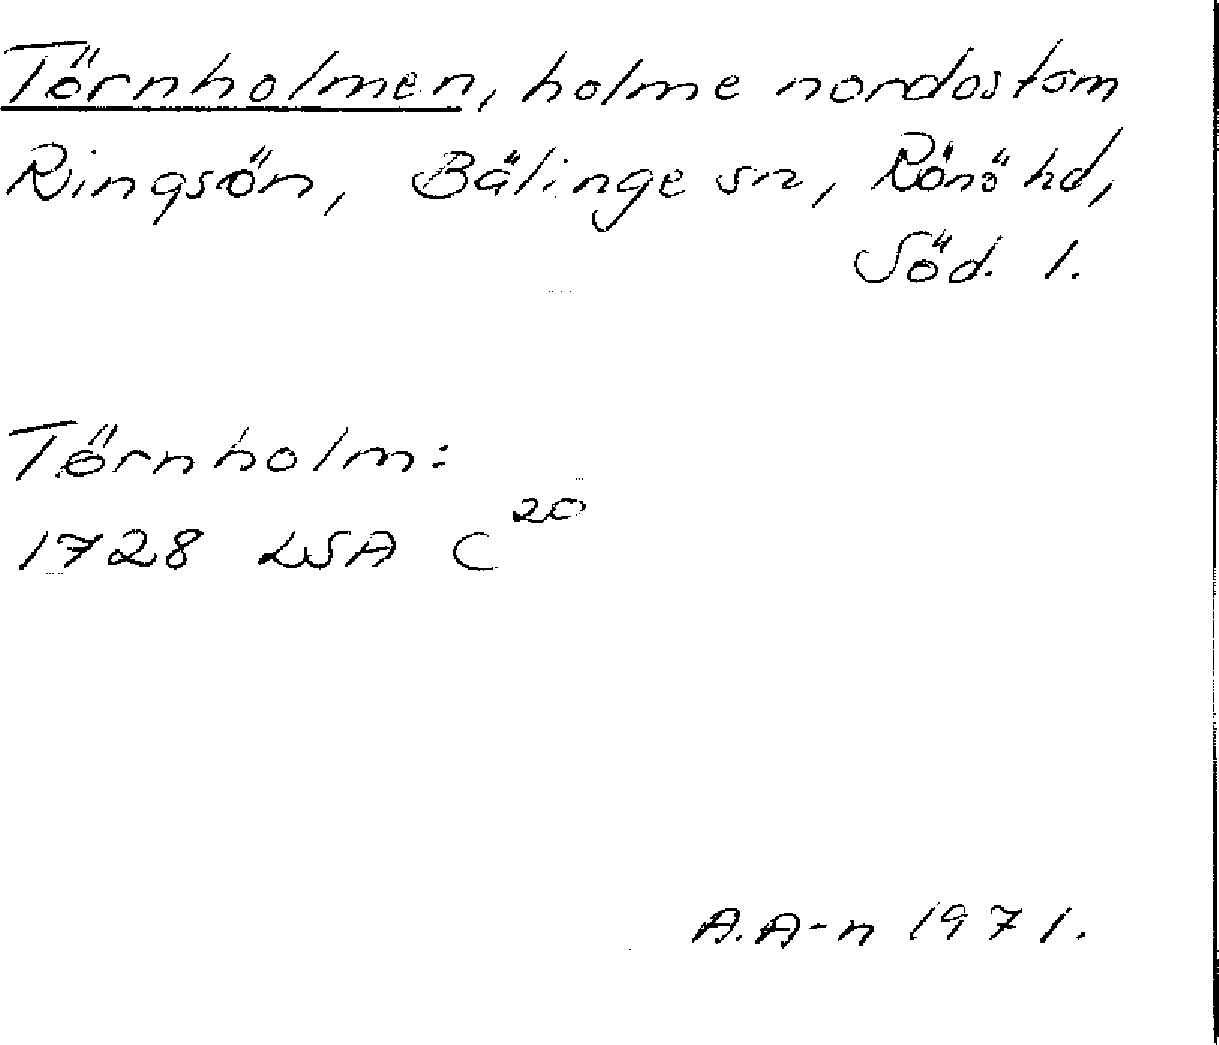 Törnholmen, holme nordost om
Ringsön, Bälinge sn, Rönö hd,
Söd. l.
Törnholm:
1728 LSA C 20
A.A-n 1971.